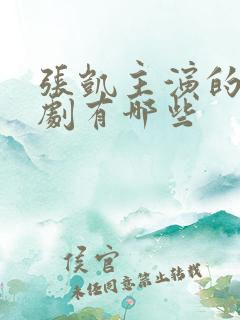 張凱主演的
劇有哪些
侯官
未任同意禁止转载